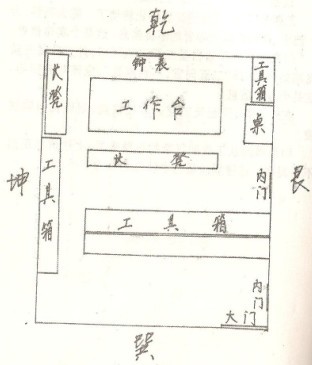 乾
钟表
工具箱
长凳
工作台
桌
长凳
坤
工具箱
内门
艮
工具箱
内门
大门
巽